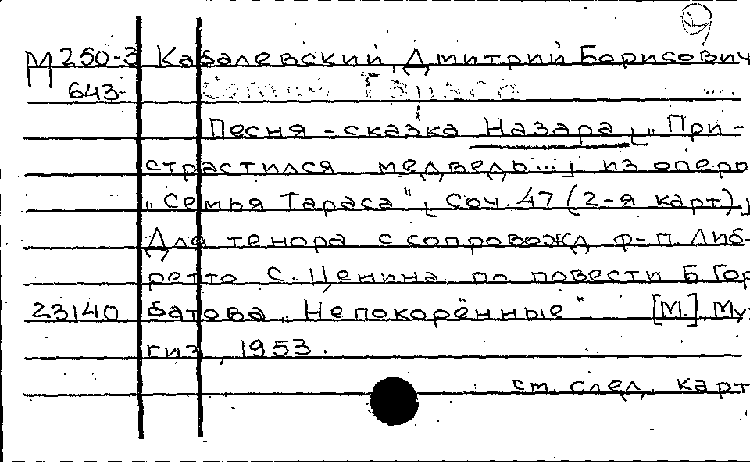 М 250-3 Кабалевский, Дмитрий Борисович
643- Семья Тараса
Песня-сказка Назара „При-
страстился медведь...“ из оперы
„Семья Тараса“, Соч. 47 (2-я карт),
Для тенора с сопровожд ф-п. Либ-
ретто С. Ценина по повести Б Гор
23140 батова „Непокорённые“ [М.] Муз
гиз, 1953.
см. след. карт